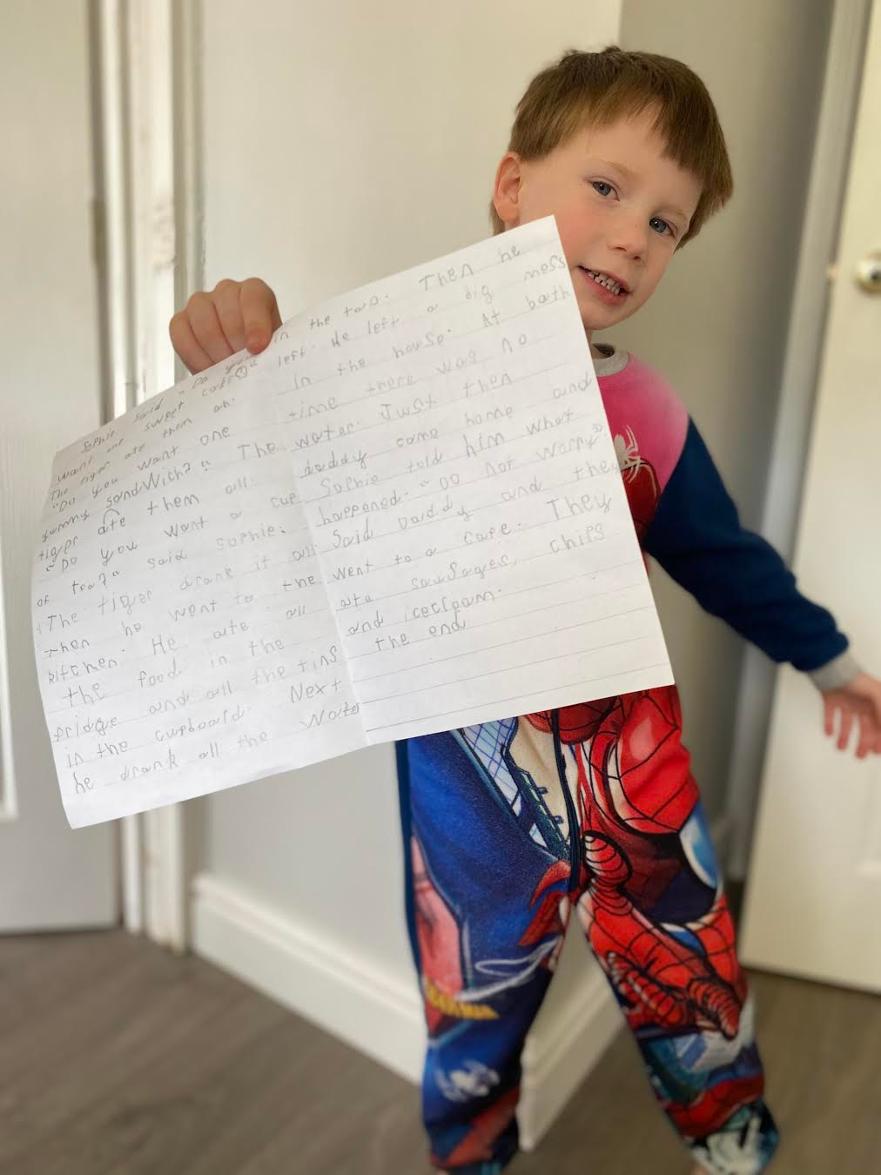 Sophie said "Do you
want one sweet
The tiger ate them all.
"Do you want one
yummy sandwich?" The
tiger ate them all.
"Do you want a cup
of tea?" said Sophie.
The tiger drank it all
Then he went to the
kitchen. He ate all
the food in the
fridge and all the tins
in the cupboard. Next
he drank all the Water
in the tap. Then he
left. He left a big mess
in the house. At bath
time there was no
water. Just then
daddy came home and
Sophie told him what
happened. "Do not worry"
Said Daddy and they
went to a cafe. They
ate sausages, chips
and icecream.
the end